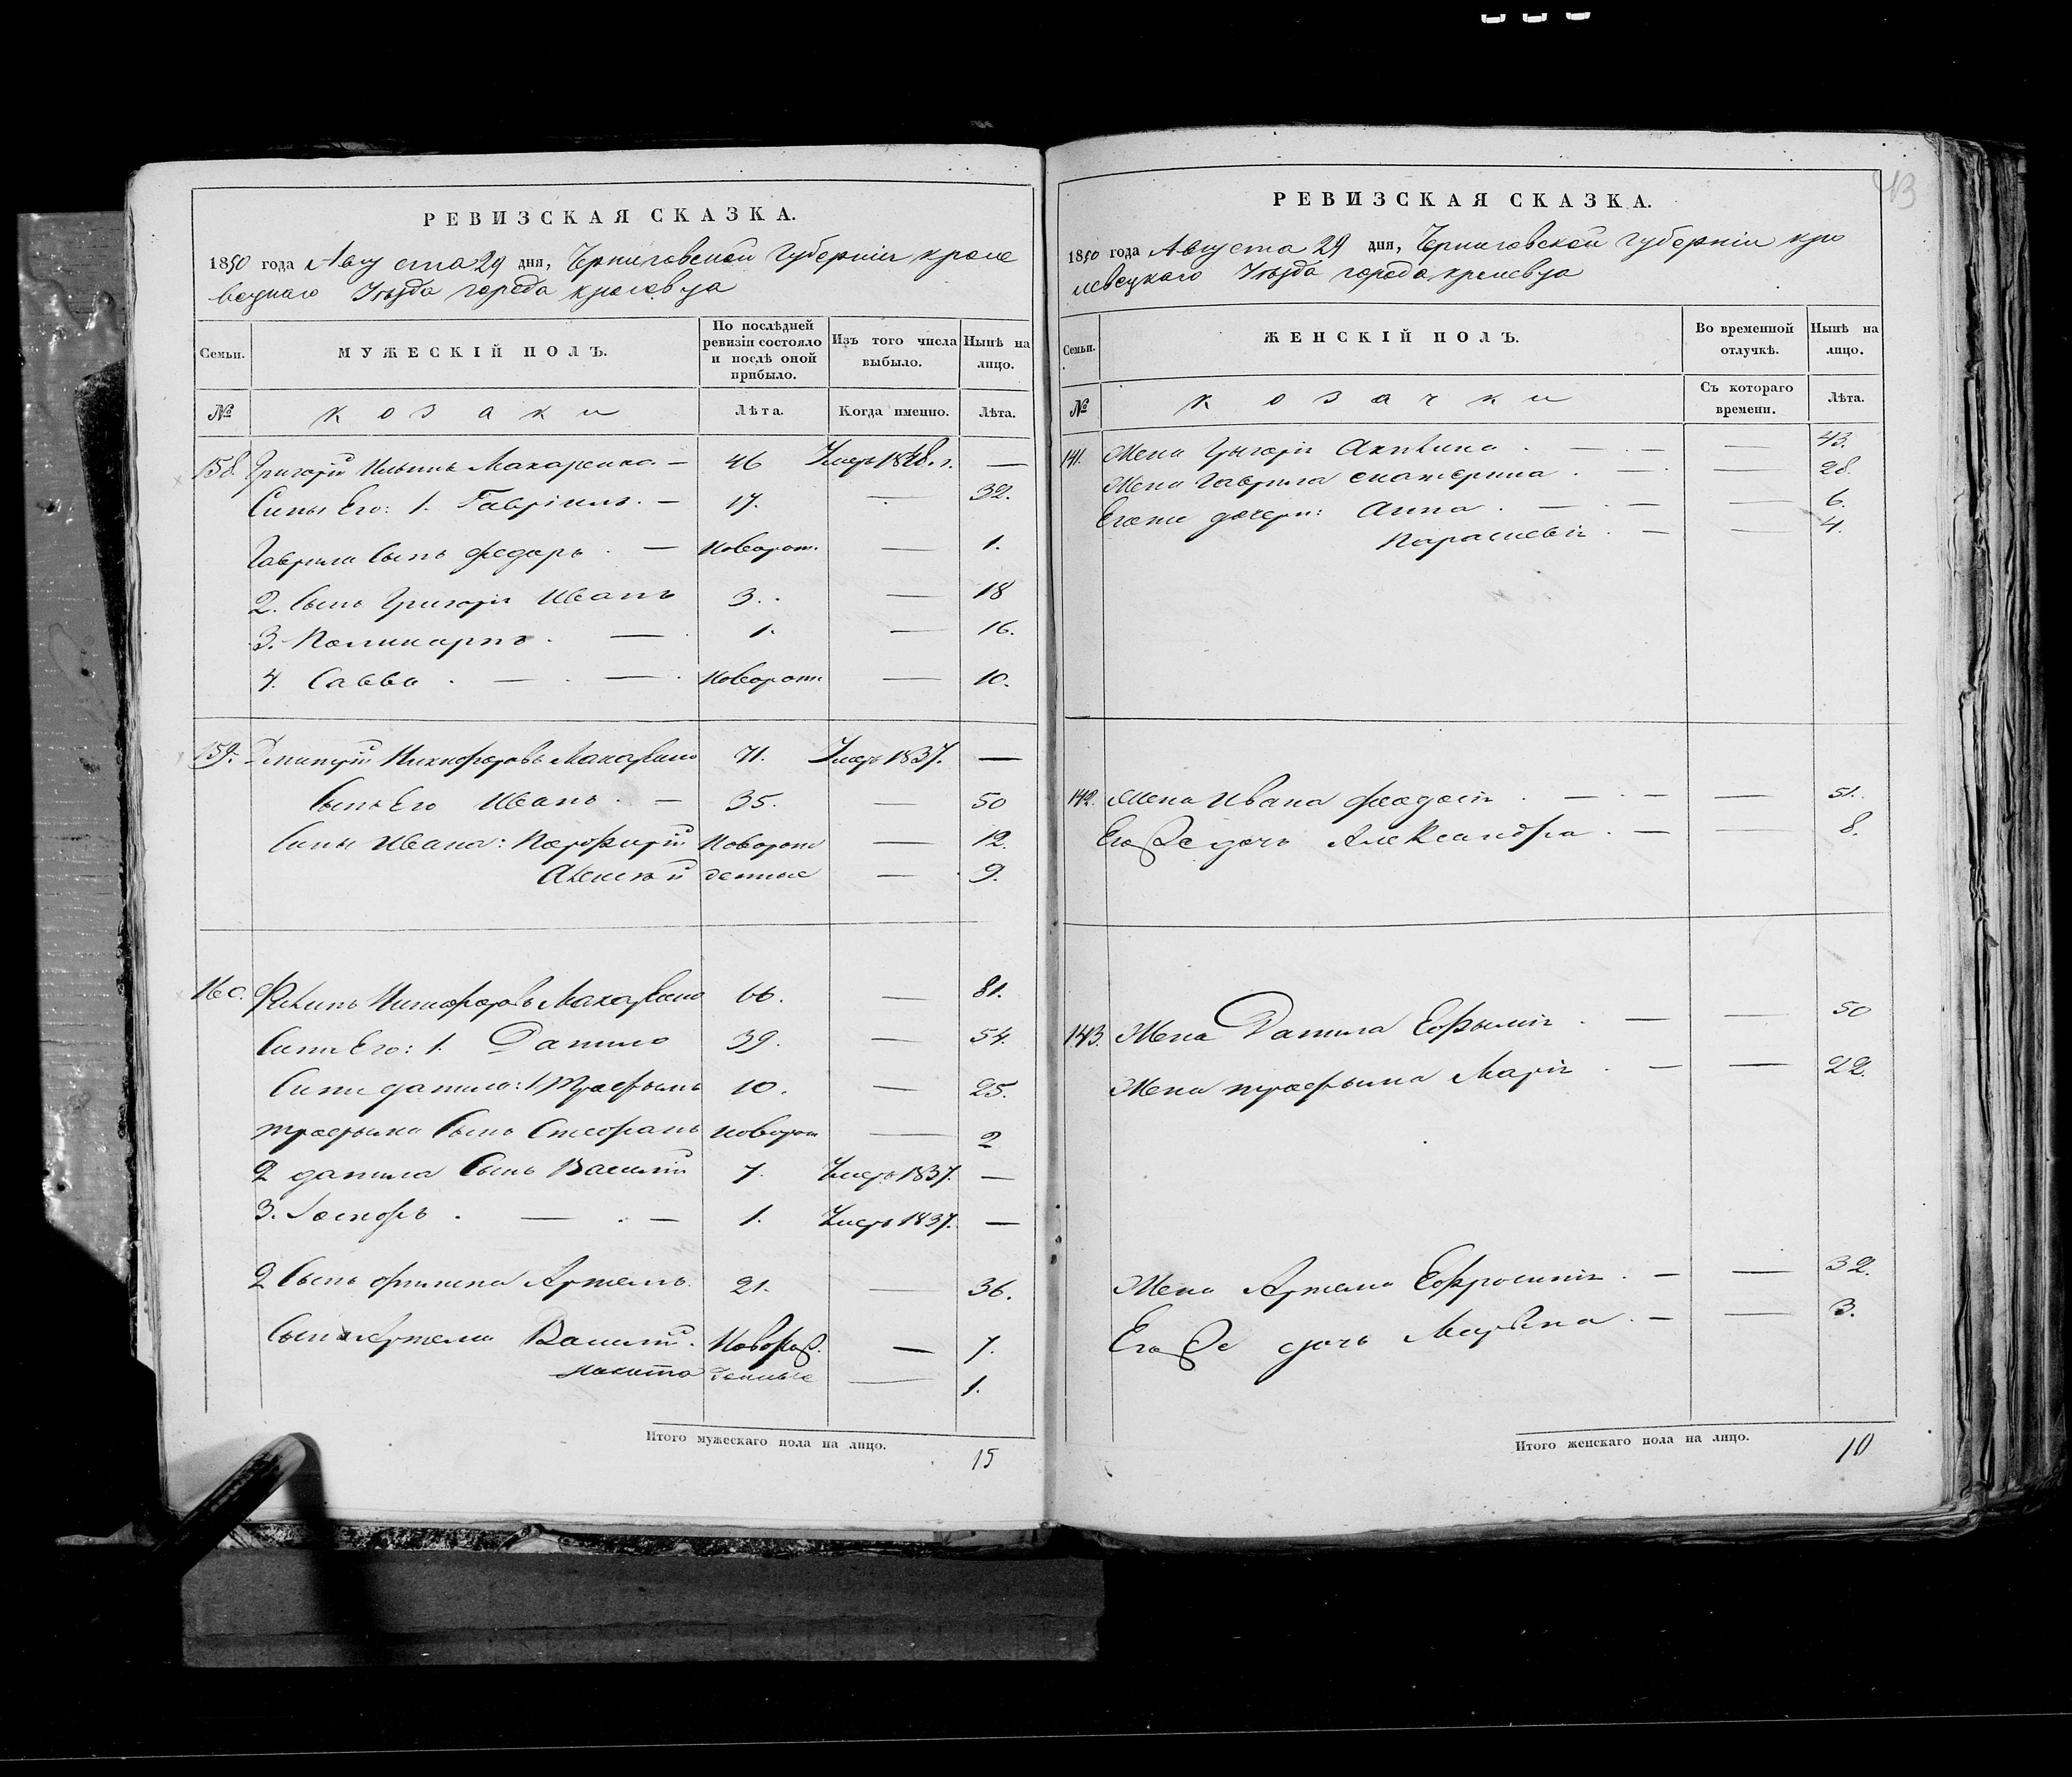 РЕВИЗСКАЯ СКАЗКА.
1850 года Августа 29 дня, Черниговской Губерніи кроле
вецкаго Уѣзда города кролевца
Семьи.
МУЖЕСКІЙ ПОЛЪ.
По послѣдней ревизіи состояло и послѣ оной прибыло.
Изъ того числа выбыло.
Нынѣ на лицо.
№
козаки
Лѣта.
Когда именно.
Лѣта.
158. Григорій Ильинъ Макаренко — 46 Умеръ 1848. г. —
Сины Его: 1. Гавріилъ. — 17. — 32.
Гаврила Сынъ Федоръ . — новорож. — 1.
2. Сынъ Григорія Иванъ 3. — 18
3. Поликарпъ . — 1. — 16.
4. Савва . — . — . новорож — 10.
159. Дмитрій Никифоровъ Макаренко 71. Умеръ 1837. —
Сынъ Его Иванъ . — 35. — 50
Сины Ивана: Порфирій Новорож — 12.
Алексѣй денные — 9.
160. Филипъ Никифоровъ Макаренко 66. — 81.
Сини Его: 1. Данило 39. — 54.
Сини данила: 1 Трофымъ 10. — 25.
трофыма Сынъ Стефанъ новорож — 2
2 данила Сынъ Василій 7. Умеръ 1837. —
3. . — . — 1. Умеръ 1837. —
2 Сынъ филипа Артемъ. 21. — 36.
Сыны Артема Василій. Новорож. — 7.
Никита денные — 1.
Итого мужескаго пола на лицо. 15
43
РЕВИЗСКАЯ СКАЗКА.
1850 года Августа 29 дня, Черниговской Губерніи кро
левецкаго Уѣзда города кролевца
Семьи.
ЖЕНСКІЙ ПОЛЪ.
Во временной отлучкѣ.
Нынѣ на лицо.
№
козачки
Съ котораго времени.
Лѣта.
141. Жена Григорія Акилина . — . — — 43.
Жена Гаврила екатерина . — . — 28.
Егоже дочери: Анна . — . — — 6.
Парасковія . — — 4.
142. Жена Ивана феодосія . — . — — 51.
Его же дочь Александра . — — 8.
143. Жена Данила Ефымія . — — 50
Жена трофыма Марія . — — 22.
Жена Артема Ефросинія . — — 32.
Его же дочь Марѣна . — — 3.
Итого женскаго пола на лицо. 10